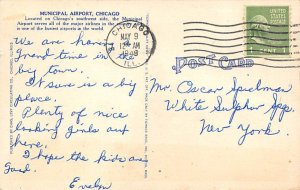 MUNICIPAL AIRPORT, CHICAGO
Located on Chicago's southwest side, the Municipal
Airport serves all of the major airlines in the
is one of the busiest airports in the world.
We are having
grand time in the
big town.
It sure is a big
place.
Plenty of nice
looking girls out
here.
I hope the kids are
Good.
Evelyn
CHICAGO
MAY 9
12 AM
1949
ILL.
1¢
POST CARD
Mr. Oscar Spielman
White Sulphur Spgs.
New York.